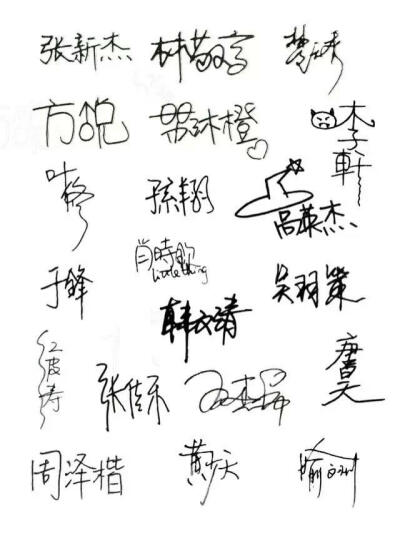 张新杰 林敬言 楚云秀
方锐 苏沐橙 李轩
叶修 孙翔 高英杰
肖時欽
Little thing
于锋 韩文清 吴羽策
江波涛 张佳乐 王杰希 唐昊
周泽楷 黄少天 喻文州